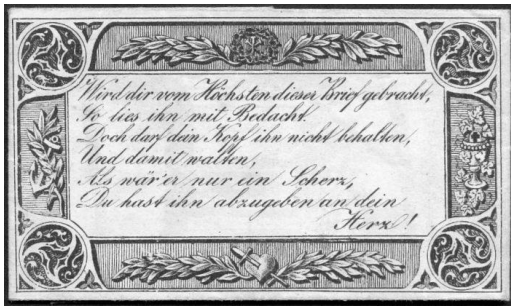 Wird dir vom Höchsten dieser Brief gebracht,
So lies ihn mit Bedacht.
Doch darf dein Kopf ihn nicht behalten,
Und damit walten,
Als wär' er nur ein Scherz,
Du hast ihn abzugeben an dein
Herz!